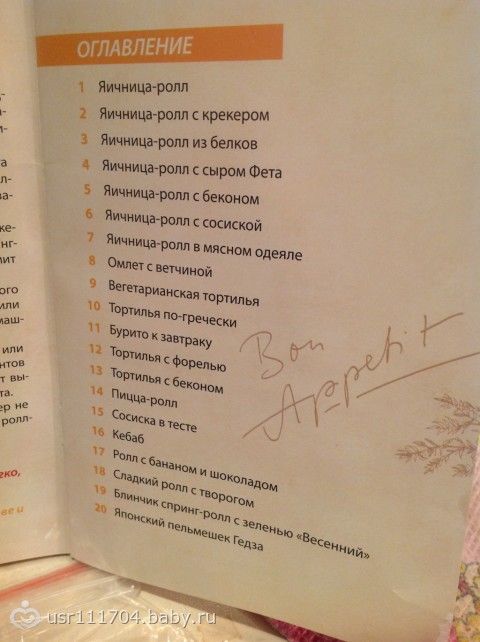 ОГЛАВЛЕНИЕ
1 Яичница-ролл
2 Яичница-ролл с крекером
3 Яичница-ролл из белков
4 Яичница-ролл с сыром Фета
5 Яичница-ролл с беконом
6 Яичница-ролл с сосиской
7 Яичница-ролл в мясном одеяле
8 Омлет с ветчиной
9 Вегетарианская тортилья
10 Тортилья по-гречески
11 Бурито к завтраку
12 Тортилья с форелью
13 Тортилья с беконом
14 Пицца-ролл
15 Сосиска в тесте
16 Кебаб
17 Ролл с бананом и шоколадом
18 Сладкий ролл с творогом
19 Блинчик спринг-ролл с зеленью «Весенний»
20 Японский пельмешек Гедза
Bon
Appetit
usr111704.baby.ru